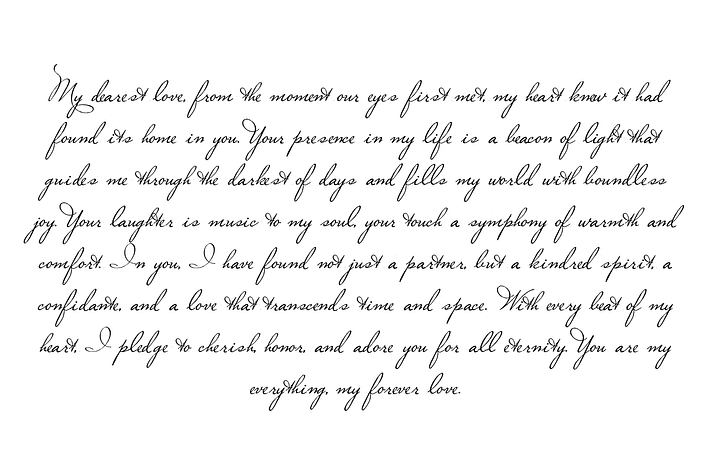 My dearest love, from the moment our eyes first met, my heart knew it had
found its home in you. Your presence in my life is a beacon of light that
guides me through the darkest of days and fills my world with boundless
joy. Your laughter is music to my soul, your touch a symphony of warmth and
comfort. In you, I have found not just a partner, but a kindred spirit, a
confidante, and a love that transcends time and space. With every beat of my
heart, I pledge to cherish, honor, and adore you for all eternity. You are my
everything, my forever love.